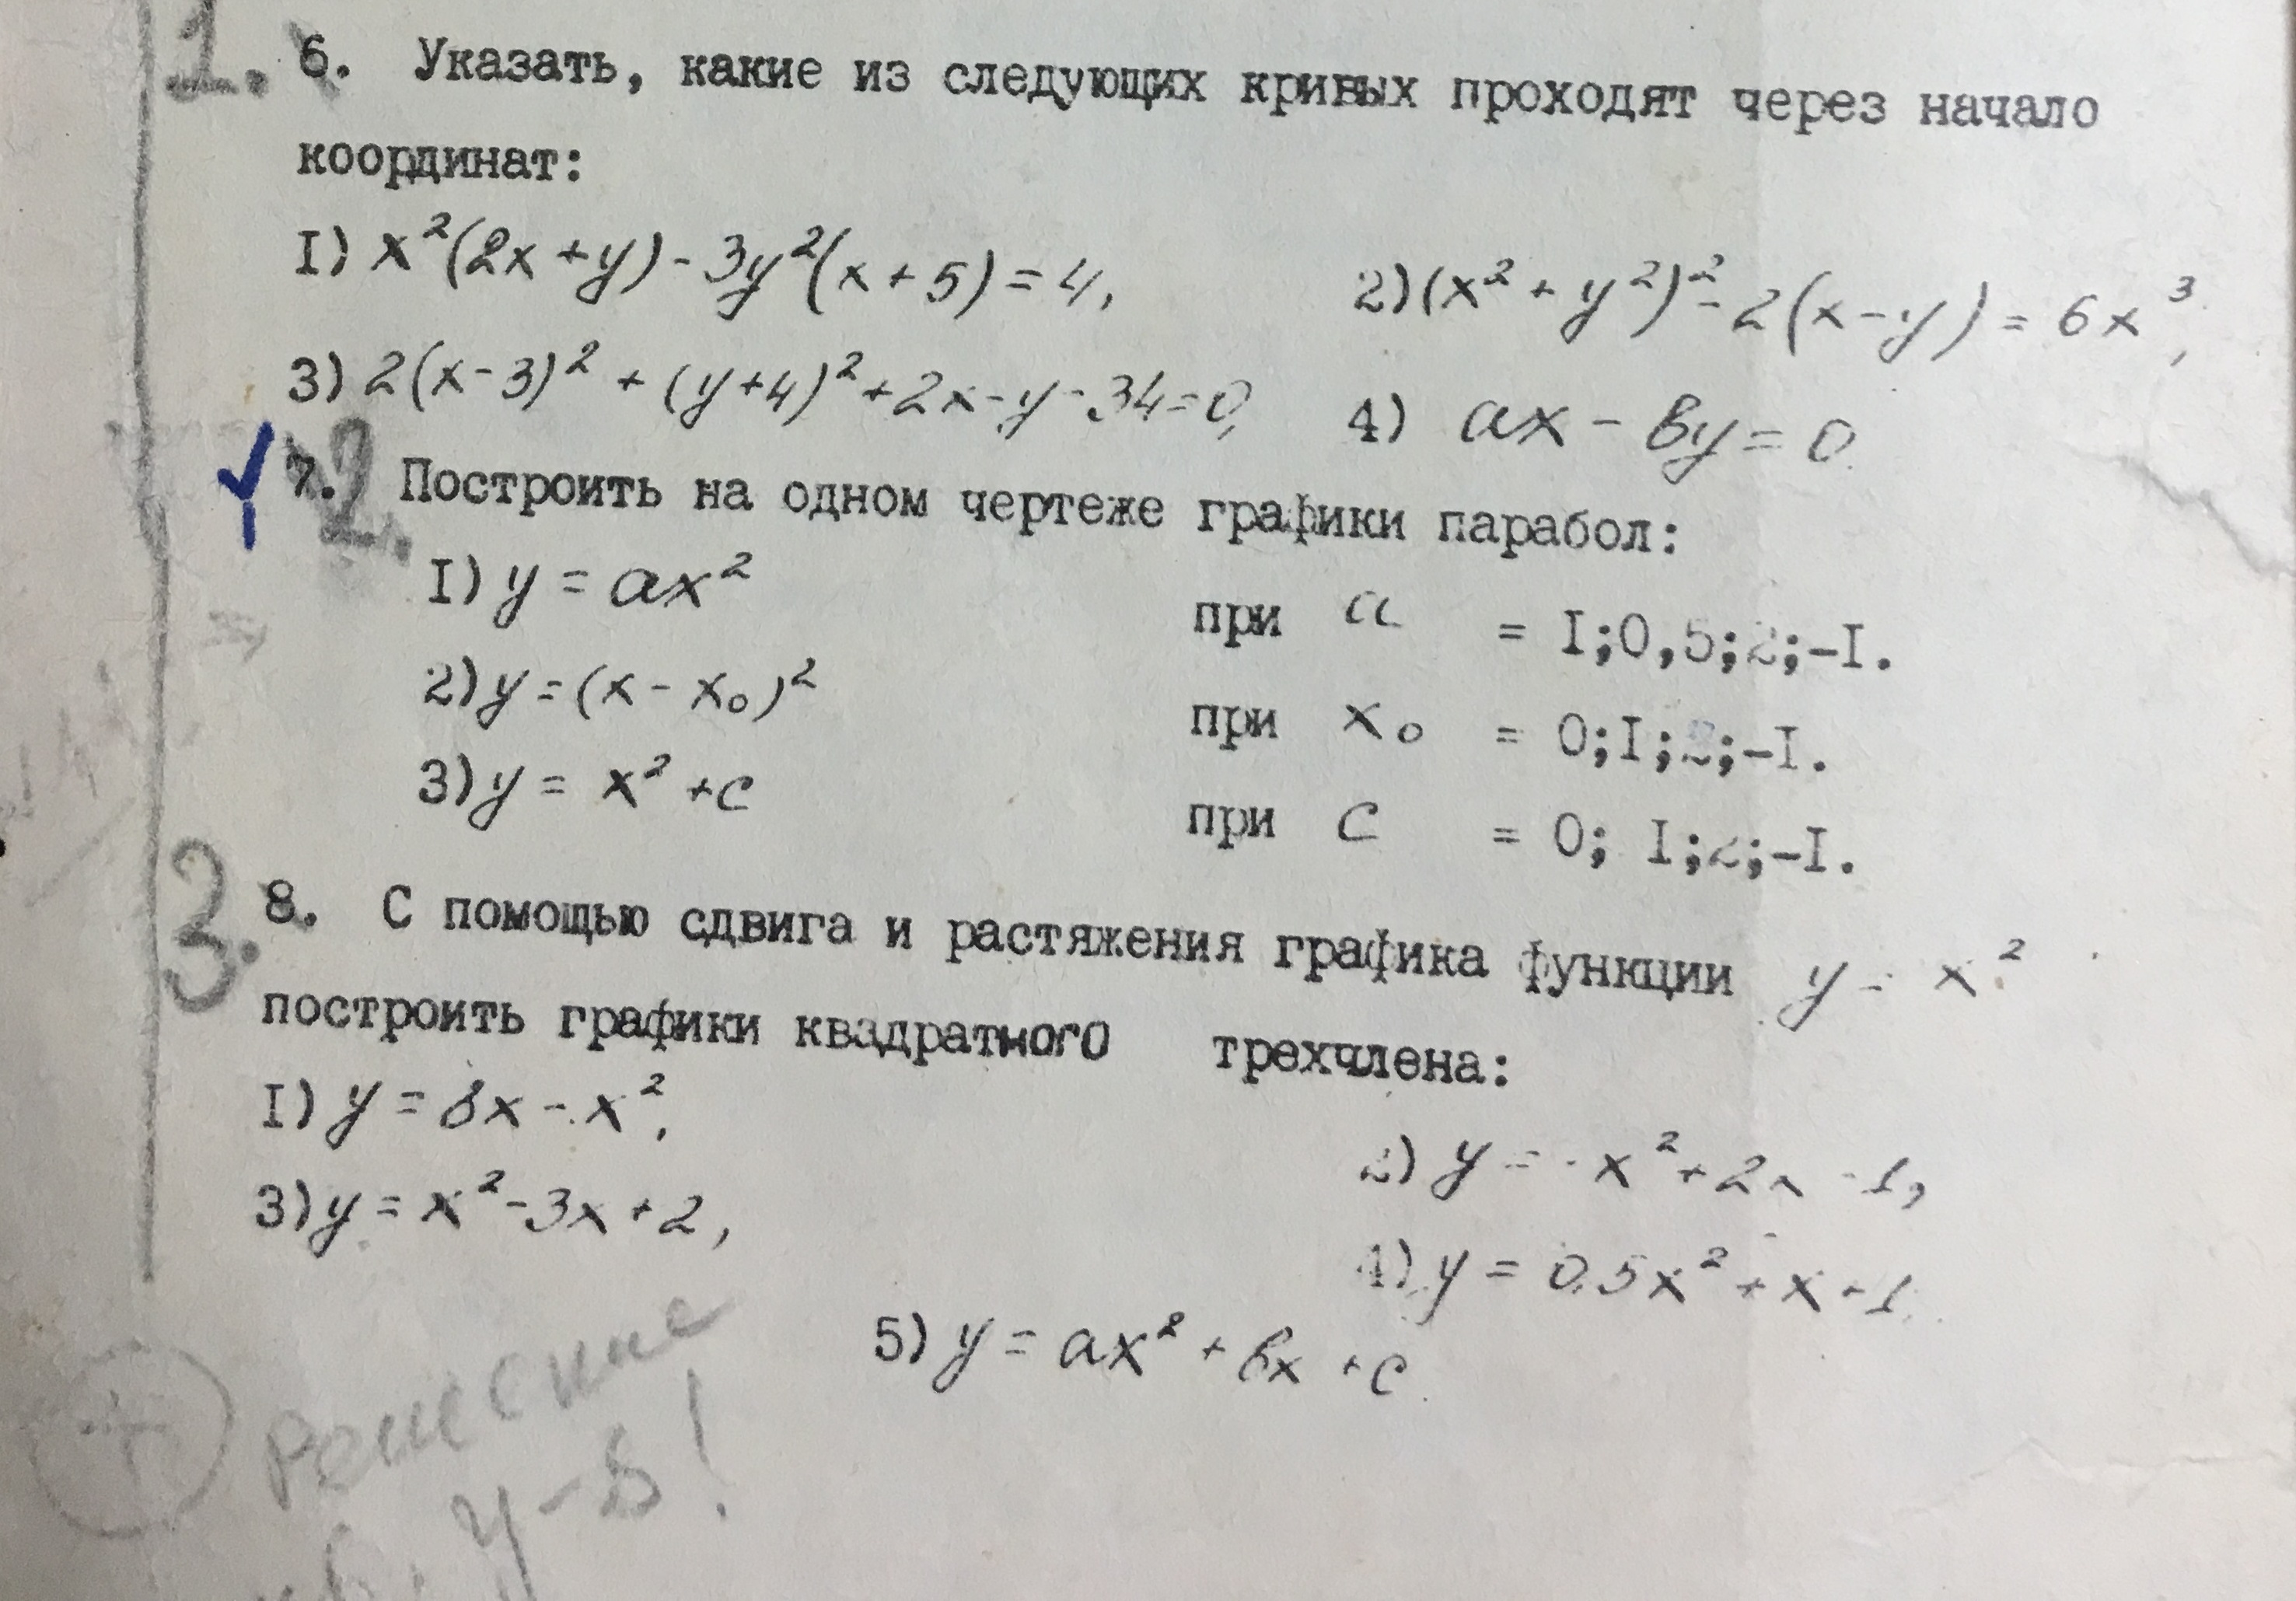 1. 6. Указать, какие из следующих кривых проходят через начало
координат:
I) x²(2x+y)-3y²(x+5)=4, 2) (x²+y²)²-2(x-y)=6x³,
3) 2(x-3)²+(y+4)²+2x-y-34=0, 4) ax-вy=0.
7. 2. Построить на одном чертеже графики парабол:
I) y=ax² при a = I;0,5;2;-I.
2) y=(x-x₀)² при x₀ = 0;I;2;-I.
3) y=x²+c при c = 0; I;2;-I.
3. 8. С помощью сдвига и растяжения графика функции y=x²
построить графики квадратного трехчлена:
I) y=8x-x²,
2) y=-x²+2x-1,
3) y=x²-3x+2,
4) y=0.5x²+x+1.
5) y=ax²+вx+c.
Решение